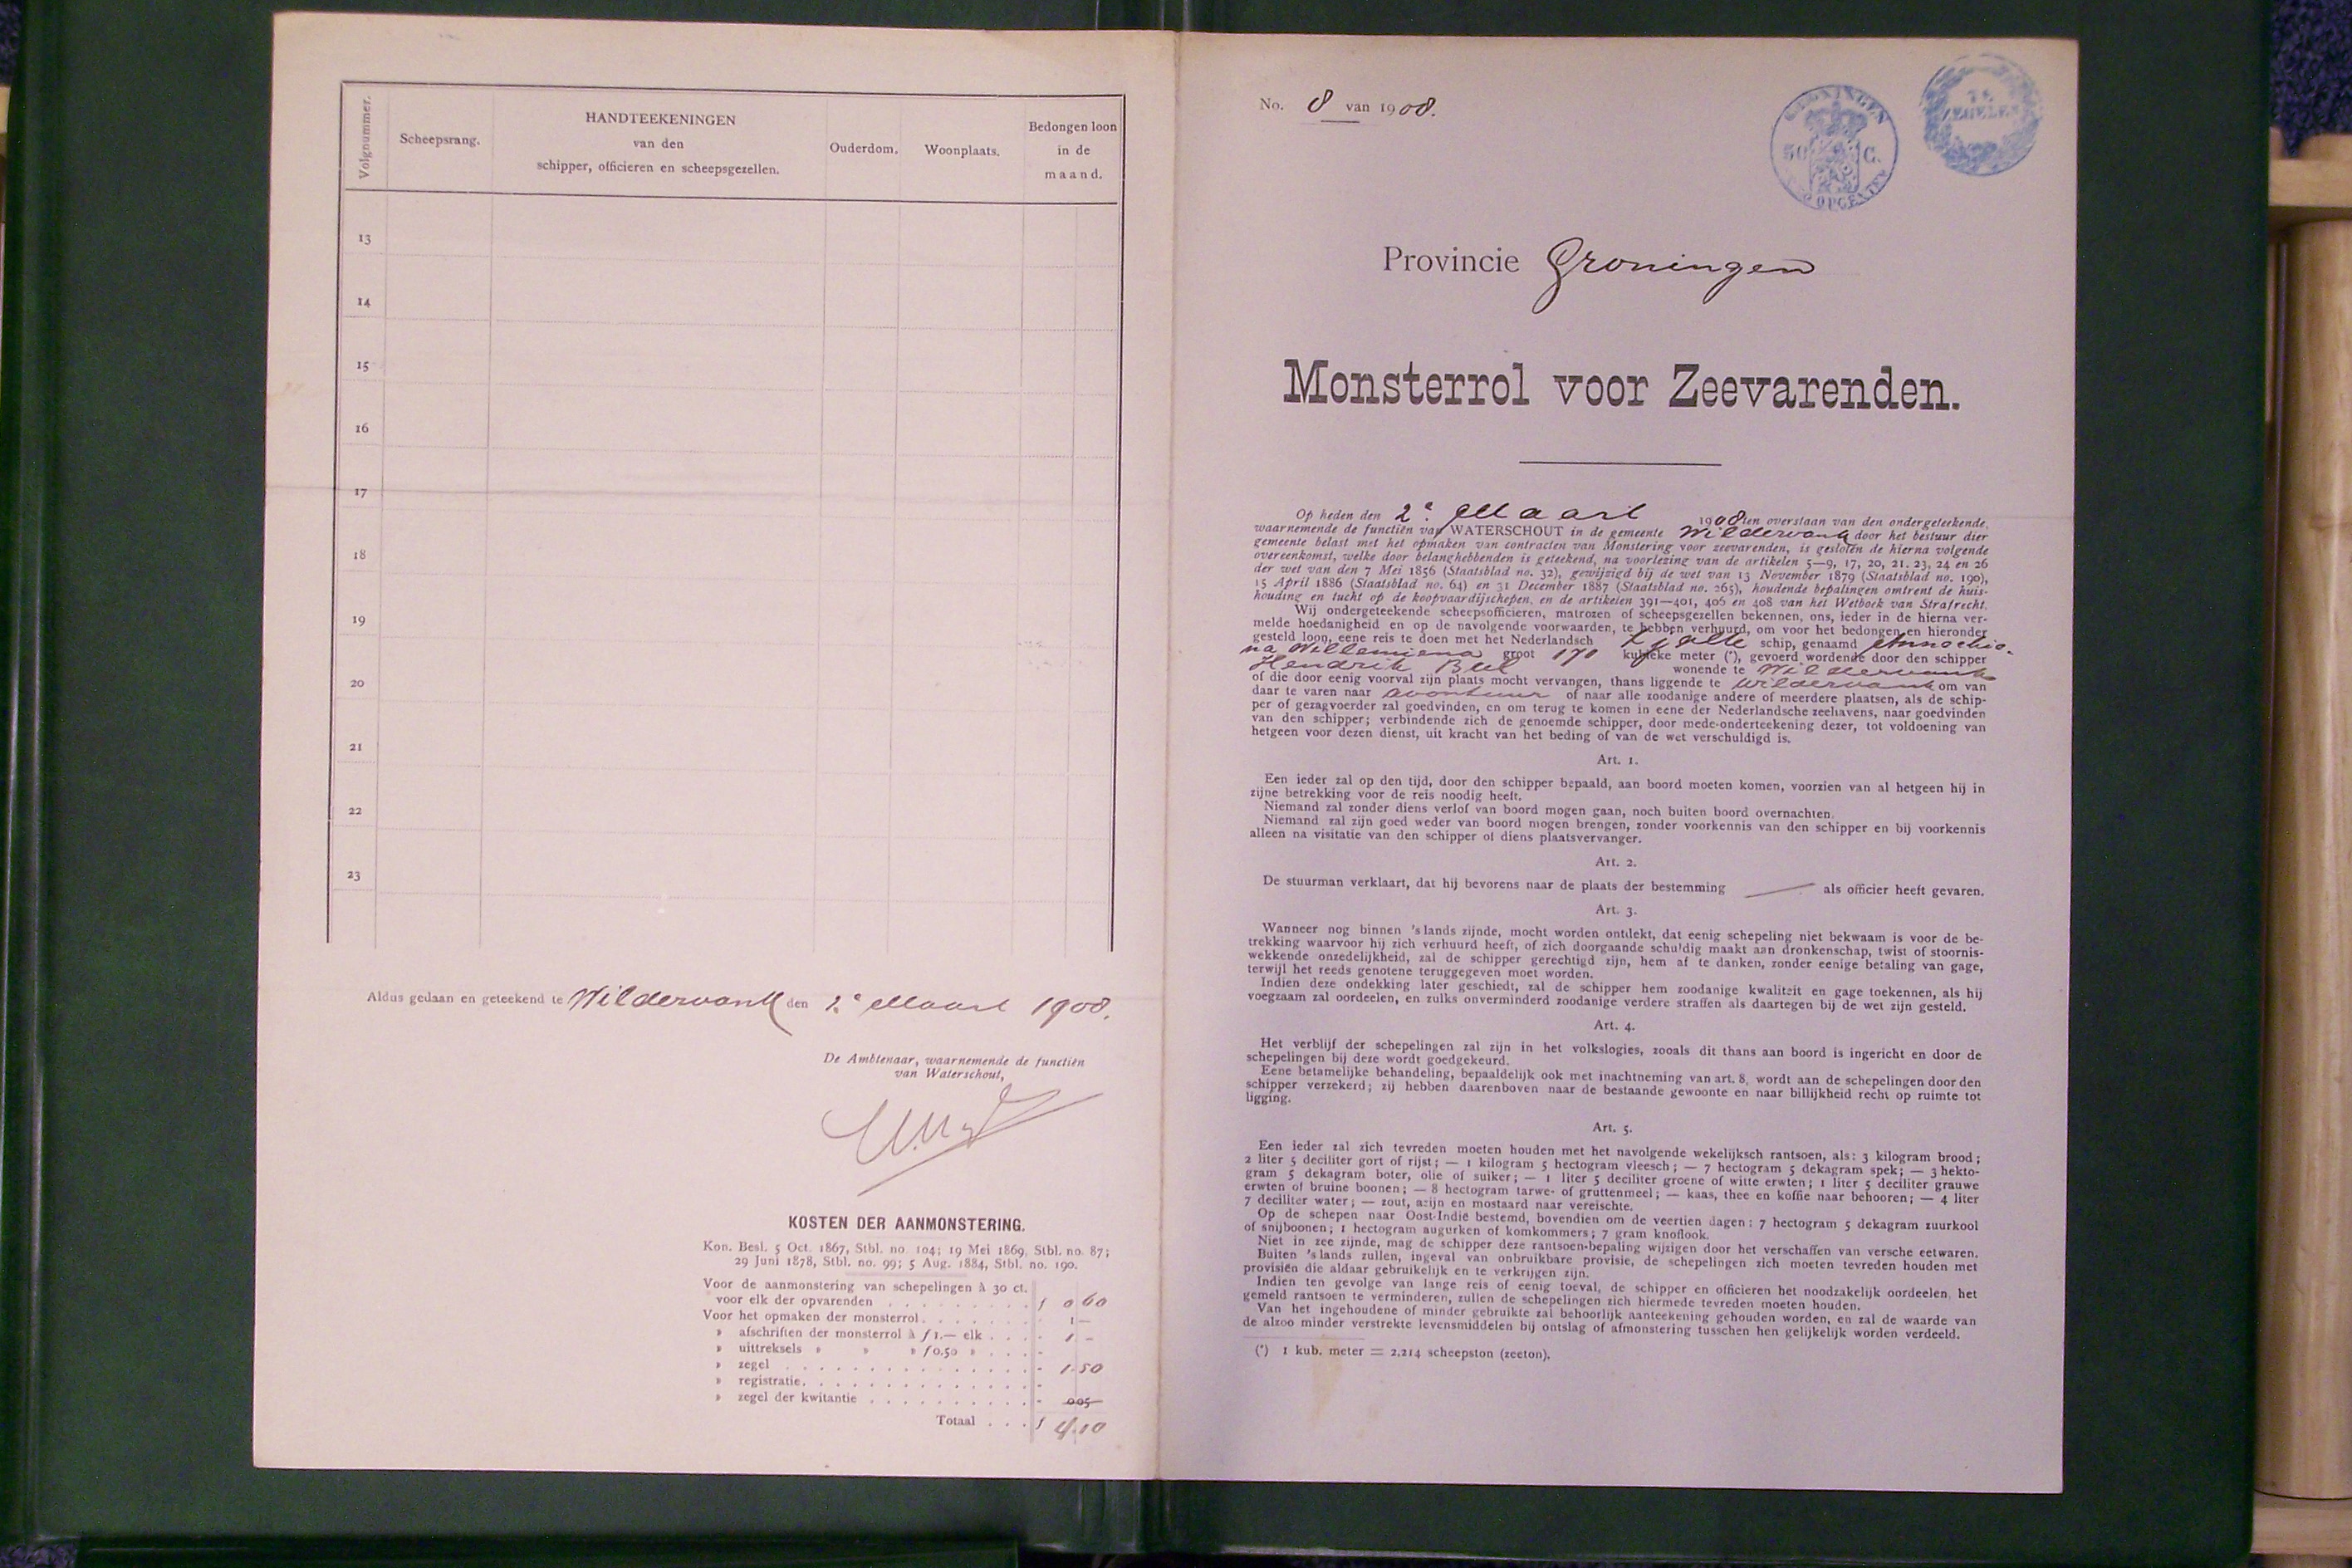 Volgnummer.
Scheepsrang.
HANDTEEKENINGEN
van den
schipper, officieren en scheepsgezellen.
Ouderdom.
Woonplaats.
Bedongen loon
in de
maand.
13
14
15
16
17
18
19
20
21
22
23
Aldus gedaan en geteekend te Wildervank den 2e Maart 1908.
De Ambtenaar, waarnemende de functiën
van Waterschout,
KOSTEN DER AANMONSTERING.
Kon. Besl. 5 Oct. 1867, Stbl. no. 104; 19 Mei 1869, Stbl. no. 87;
29 Juni 1878, Stbl. no. 99; 5 Aug. 1884, Stbl. no. 190.
Voor de aanmonstering van schepelingen à 30 ct.
voor elk der opvarenden . . . . . . . . . f 0 60
Voor het opmaken der monsterrol . . . . . . . - 1 —
» afschriften der monsterrol à f 1.— elk . . . . - 1 -
» uittreksels » » » f 0.50 » . . . . -
» zegel . . . . . . . . . . . . . . . . - 1.50
» registratie . . . . . . . . . . . . . . -
» zegel der kwitantie . . . . . . . . . . - 005
Totaal . . . f 4.10
No. 8 van 1908.
GRONINGEN
50 C.
OPCENTEN
Provincie Groningen
Monsterrol voor Zeevarenden.
Op heden den 2e Maart 1908 ten overstaan van den ondergeteekende,
waarnemende de functiën van WATERSCHOUT in de gemeente Wildervank door het bestuur dier
gemeente belast met het opmaken van contracten van Monstering voor zeevarenden, is gesloten de hierna volgende
overeenkomst, welke door belanghebbenden is geteekend, na voorlezing van de artikelen 5—9, 17, 20, 21. 23, 24 en 26
der wet van den 7 Mei 1856 (Staatsblad no. 32), gewijzigd bij de wet van 13 November 1879 (Staatsblad no. 190),
15 April 1886 (Staatsblad no. 64) en 31 December 1887 (Staatsblad no. 265), houdende bepalingen omtrent de huis-
houding en tucht op de koopvaardijschepen, en de artikelen 391—401, 406 en 408 van het Wetboek van Strafrecht.
Wij ondergeteekende scheepsofficieren, matrozen of scheepsgezellen bekennen, ons, ieder in de hierna ver-
melde hoedanigheid en op de navolgende voorwaarden, te hebben verhuurd, om voor het bedongen en hieronder
gesteld loon, eene reis te doen met het Nederlandsch tjalk schip, genaamd Annechie-
na Willemiena groot 170 kubieke meter (*), gevoerd wordende door den schipper
Hendrik Bul wonende te Wildervank
of die door eenig voorval zijn plaats mocht vervangen, thans liggende te Wildervank om van
daar te varen naar avontuur of naar alle zoodanige andere of meerdere plaatsen, als de schip-
per of gezagvoerder zal goedvinden, en om terug te komen in eene der Nederlandsche zeehavens, naar goedvinden
van den schipper; verbindende zich de genoemde schipper, door mede-onderteekening dezer, tot voldoening van
hetgeen voor dezen dienst, uit kracht van het beding of van de wet verschuldigd is.
Art. 1.
Een ieder zal op den tijd, door den schipper bepaald, aan boord moeten komen, voorzien van al hetgeen hij in
zijne betrekking voor de reis noodig heeft.
Niemand zal zonder diens verlof van boord mogen gaan, noch buiten boord overnachten.
Niemand zal zijn goed weder van boord mogen brengen, zonder voorkennis van den schipper en bij voorkennis
alleen na visitatie van den schipper of diens plaatsvervanger.
Art. 2.
De stuurman verklaart, dat hij bevorens naar de plaats der bestemming — als officier heeft gevaren.
Art. 3.
Wanneer nog binnen 's lands zijnde, mocht worden ontdekt, dat eenig schepeling niet bekwaam is voor de be-
trekking waarvoor hij zich verhuurd heeft, of zich doorgaande schuldig maakt aan dronkenschap, twist of stoornis-
wekkende onzedelijkheid, zal de schipper gerechtigd zijn, hem af te danken, zonder eenige betaling van gage,
terwijl het reeds genotene teruggegeven moet worden.
Indien deze ondekking later geschiedt, zal de schipper hem zoodanige kwaliteit en gage toekennen, als hij
voegzaam zal oordeelen, en zulks onverminderd zoodanige verdere straffen als daartegen bij de wet zijn gesteld.
Art. 4.
Het verblijf der schepelingen zal zijn in het volkslogies, zooals dit thans aan boord is ingericht en door de
schepelingen bij deze wordt goedgekeurd.
Eene betamelijke behandeling, bepaaldelijk ook met inachtneming van art. 8, wordt aan de schepelingen door den
schipper verzekerd; zij hebben daarenboven naar de bestaande gewoonte en naar billijkheid recht op ruimte tot
ligging.
Art. 5.
Een ieder zal zich tevreden moeten houden met het navolgende wekelijksch rantsoen, als: 3 kilogram brood;
2 liter 5 deciliter gort of rijst; — 1 kilogram 5 hectogram vleesch; — 7 hectogram 5 dekagram spek; — 3 hekto-
gram 5 dekagram boter, olie of suiker; — 1 liter 5 deciliter groene of witte erwten; 1 liter 5 deciliter grauwe
erwten of bruine boonen; — 8 hectogram tarwe- of gruttenmeel; — kaas, thee en koffie naar behooren; — 4 liter
7 deciliter water; — zout, azijn en mostaard naar vereischte.
Op de schepen naar Oost-Indië bestemd, bovendien om de veertien dagen: 7 hectogram 5 dekagram zuurkool
of snijboonen; 1 hectogram augurken of komkommers; 7 gram knoflook.
Niet in zee zijnde, mag de schipper deze rantsoen-bepaling wijzigen door het verschaffen van versche eetwaren.
Buiten 's lands zullen, ingeval van onbruikbare provisie, de schepelingen zich moeten tevreden houden met
provisiën die aldaar gebruikelijk en te verkrijgen zijn.
Indien ten gevolge van lange reis of eenig toeval, de schipper en officieren het noodzakelijk oordeelen, het
gemeld rantsoen te verminderen, zullen de schepelingen zich hiermede tevreden moeten houden.
Van het ingehoudene of minder gebruikte zal behoorlijk aanteekening gehouden worden, en zal de waarde van
de alzoo minder verstrekte levensmiddelen bij ontslag of afmonstering tusschen hen gelijkelijk worden verdeeld.
(*) 1 kub. meter = 2.214 scheepston (zeeton).